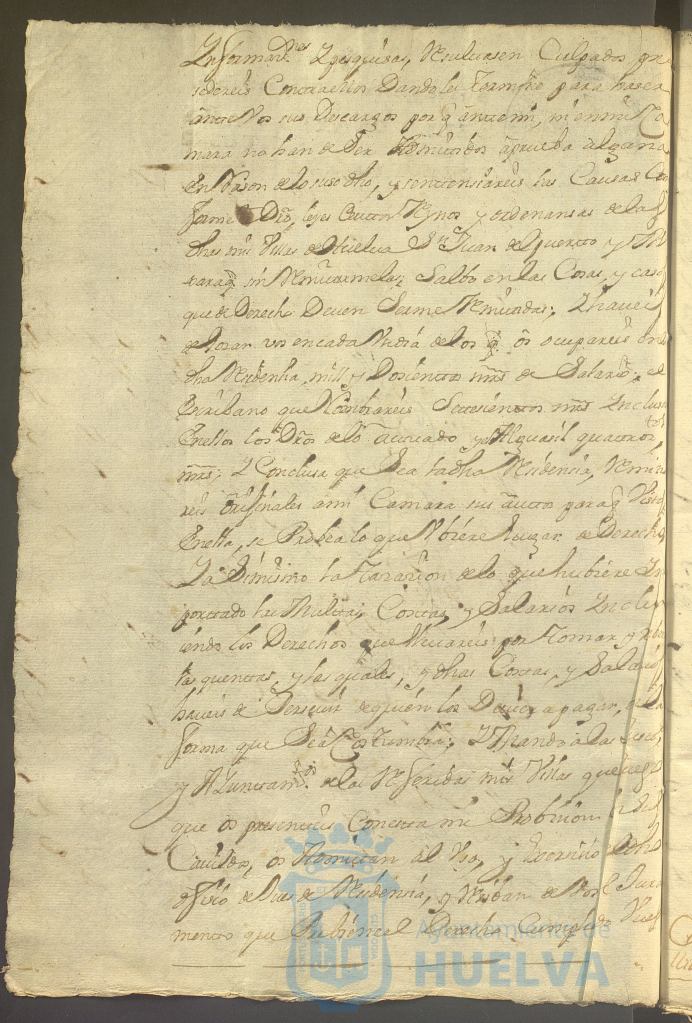 Informaz.nes Y pesquisas, Resultasen Culpados pro
sedereis Contra ellos Dandoles Termino para haser
ante Vos sus Descargos por q ante mi, ni en mi Ca
mara no han de Ser Admitidos a prueba alguna
En Rason de lo suso dho, y sentensiareis las Causas Con
forme a Dro, leyes de estos Reynos y ordenansas de las
dhas mis Villas de Huelva Sn Juan del Puerto y
para q sin Remitirmelas; Salbo en las Cosas, y casos
que de Derecho Deven Serme Remitidas; Y haveis
de llevar vos en cada Un dia de los q os ocupareis en
dha Residensia, mill y Dosientos mrs de Salario; el
Escribano que Nombrareis Setesientos mrs Inclusos
En ellos los Dros de lo actuado y el Alguasil quatros.tos
mrs; Y Conclusa que Sea la dha Residencia, Remiti
reis originales a mi Camara sus autos para q Vistos
En ella, se Probea lo que Ubiere lugar de Derecho
Y asimismo la Razon de lo que hubiere Im
portado las Multas, Costas, y Salarios Inclu
iendo los Derechos que llevareis por Tomar
las quentas, y las quales, y dhas Costas, y Salarios
haveis de Persevir de quien los Deva pagar, en la
forma que Sea Costumbre; Y Mando a las Justas,
y Ayuntam.tos de las Referidas mis Villas que luego
que os presenteis Con esta mi Probision
Cavildos, os Admitan al Uso, y Exersisio de dho
ofisio de Jues de Residensia, y Resivan de Vos el Jura
mento que Prebiene el Derecho Cumplido
Ayuntamiento de
HUELVA